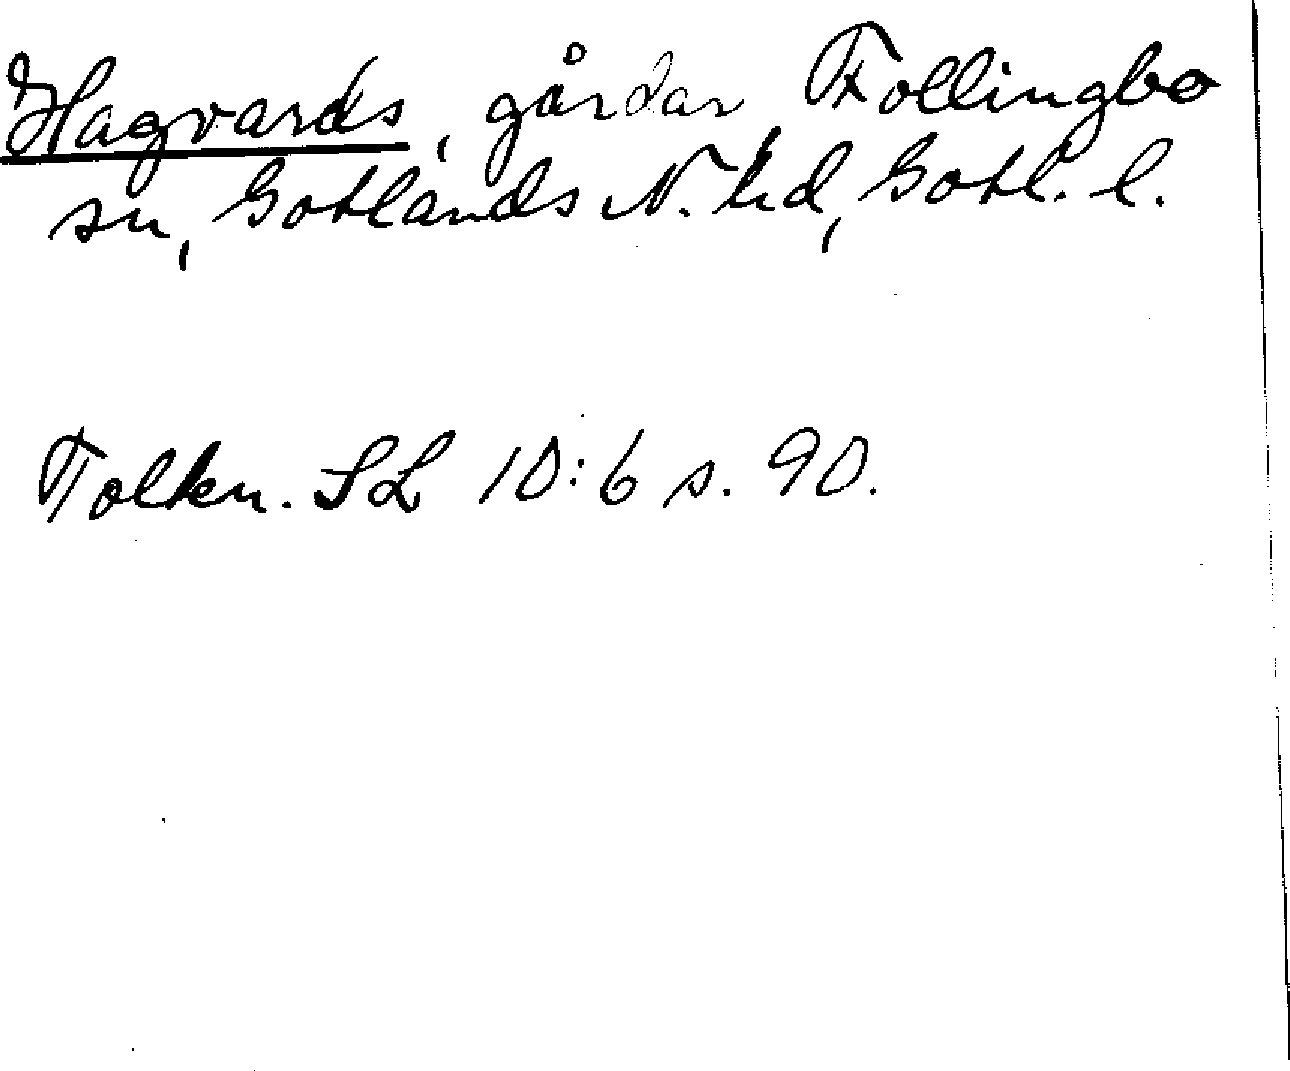 Hagvards, gårdar, Follingbo
sn, Gotlands N. hd, Gotl. l.
Tolkn. SL 10:6 s. 90.